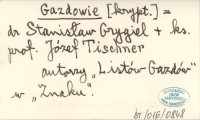 Gazdowie [krypt.] =
dr Stanisław Grygiel + ks.
prof. Józef Tischner
autorzy „Listów Gazdów"
w „Znaku".
bt/016/0848